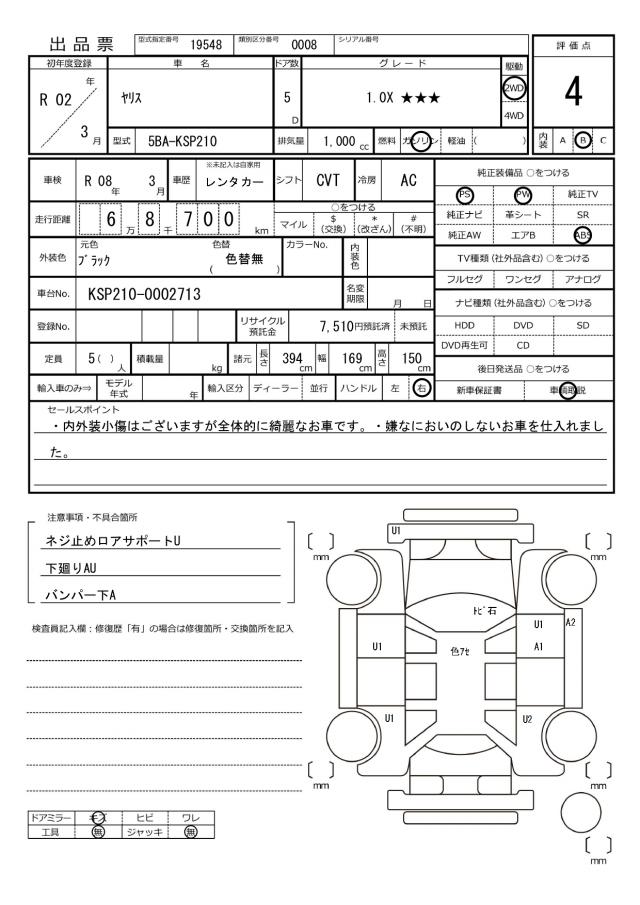 出品票
型式指定番号 19548 類別区分番号 0008 シリアル番号
評価点
4
内装 A B C
初年度登録 車名 ドア数 グレード 駆動
R 02 年 3 月
ヤリス
5 D
1.0X ★★★
2WD
4WD
型式 5BA-KSP210 排気量 1,000 cc 燃料 ガソリン 軽油 ( )
車検 R 08 年 3 月 車歴 ※未記入は自家用 レンタカー シフト CVT 冷房 AC
走行距離 6 万 8 千 7 0 0 km
○をつける
マイル $(交換) *(改ざん) #(不明)
外装色 元色 ブラック 色替 ( 色替無 ) カラーNo. 内装色
車台No. KSP210-0002713 名変期限 月 日
登録No. リサイクル預託金 7,510円預託済 未預託
定員 5( )人 積載量 kg 諸元 長さ 394 cm 幅 169 cm 高さ 150 cm
輸入車のみ⇒ モデル年式 年 輸入区分 ディーラー 並行 ハンドル 左 右
純正装備品 ○をつける
PS PW 純正TV
純正ナビ 革シート SR
純正AW エアB ABS
TV種類(社外品含む) ○をつける
フルセグ ワンセグ アナログ
ナビ種類(社外品含む) ○をつける
HDD DVD SD
DVD再生可 CD
後日発送品 ○をつける
新車保証書 車輌取説
セールスポイント
・内外装小傷はございますが全体的に綺麗なお車です。・嫌なにおいのしないお車を仕入れまし
た。
注意事項・不具合箇所
ネジ止めロアサポートU
下廻りAU
バンパー下A
検査員記入欄：修復歴「有」の場合は修復箇所・交換箇所を記入
U1
mm
mm
トビ石
U1
A2
U1
色アセ
A1
U1
U2
mm
mm
mm
ドアミラー キズ ヒビ ワレ
工具 無 ジャッキ 無